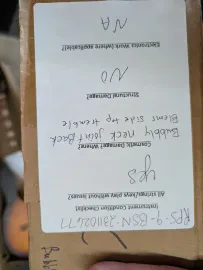 RPS-9-BSN-231102477
Instrument Condition Checklist
All strings/keys play without issues?
yes
Cosmetic Damage? Where?
Bubbly neck joint Back
Blems side top tremble
Structural Damage?
NO
Electronics Work (where applicable)?
NA